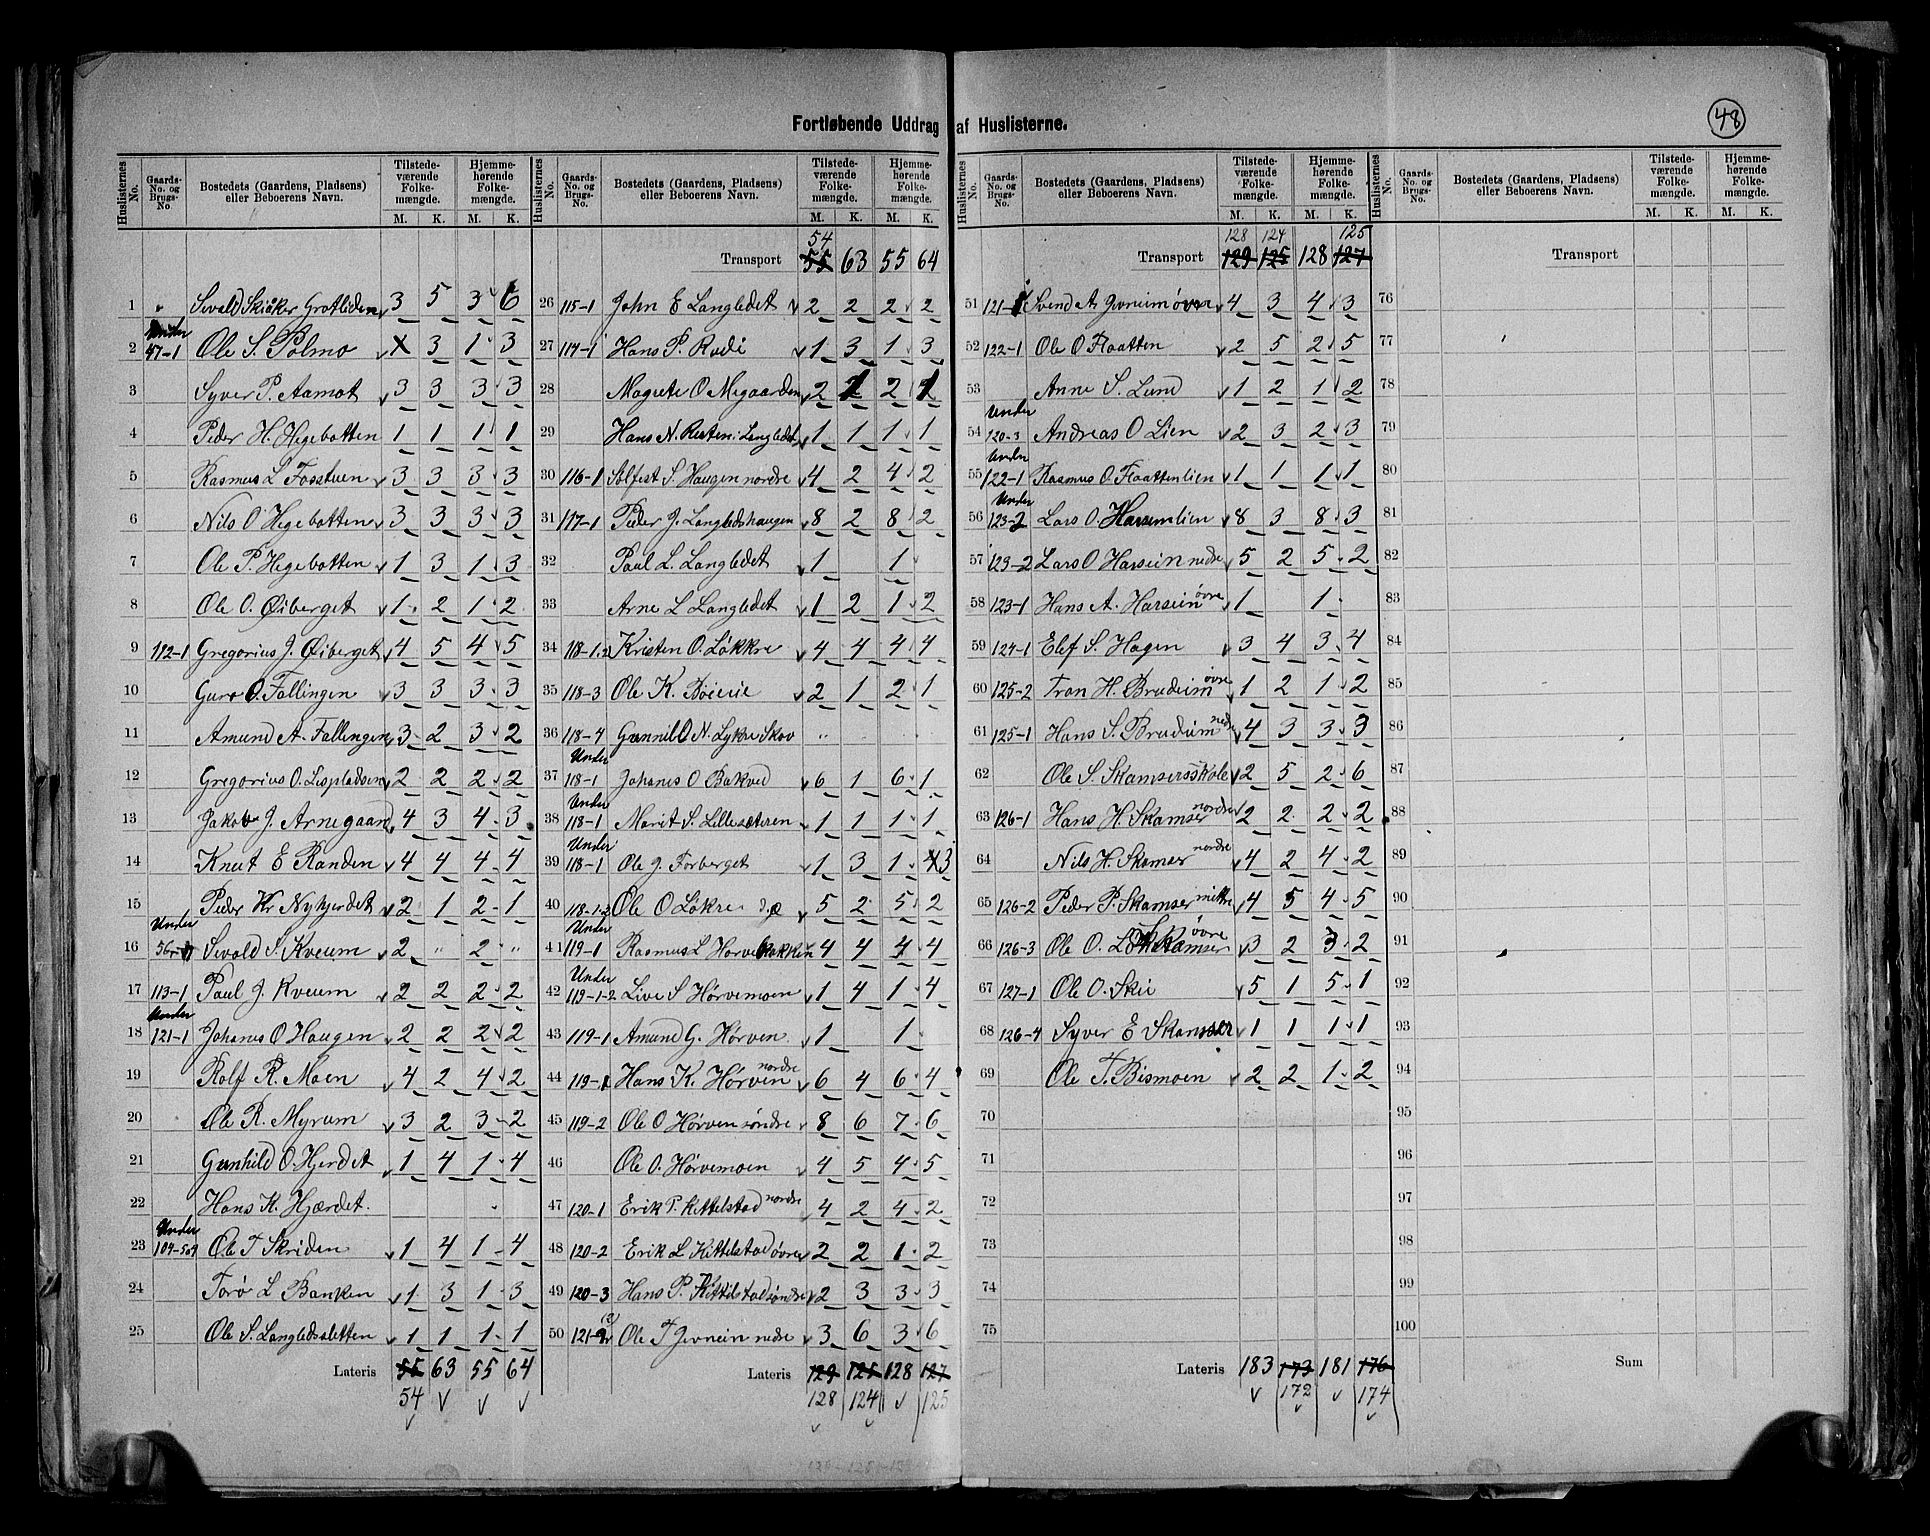 48
Fortløbende Uddrag af Huslisterne.
Huslisternes No. | Gaards-No. og Brugs-No. | Bostedets (Gaardens, Pladsens) eller Beboerens Navn. | Tilstedeværende Folkemængde. M. K. | Hjemmehørende Folkemængde. M. K.
1 " Sivald Skiåker Grotliden 3 5 3 6
2 Under 47-1 Ole S. Polmo X 3 1 3
3 Syver P. Aamot 3 3 3 3
4 Peder H. Hegebotten 1 1 1 1
5 Rasmus L Fosstuen 3 3 3 3
6 Nils O Hegebotten 3 3 3 3
7 Ole P. Hegebotten 1 3 1 3
8 Ole O. Øiberget 1 2 1 2
9 112-1 Gregorius J. Øiberget 4 5 4 5
10 Guro O. Follingen 3 3 3 3
11 Amund A. Follingen 3 2 3 2
12 Gregorius O. Lispladsen 2 2 2 2
13 Jakob J. Arnegaard 4 3 4 3
14 Knut E Randen 4 4 4 4
15 Peder Kr Nyhjerdet 2 1 2 1
16 Under Sivald S. Kveum 2 " 2 "
17 113-1 Paul J. Kveum 2 2 2 2
18 Under 121-1 Johanes O Haugen 2 2 2 2
19 Rolf R. Moen 4 2 4 2
20 Ole R. Myrum 3 2 3 2
21 Gunhild O. Hjerdet 1 4 1 4
22 Hans K. Hjærdet.
23 Under Ole T Skriden 1 4 1 4
24 Torø L Banken 1 3 1 3
25 Ole S. Langledssletten 1 1 1 1
Lateris 55 63 55 64
54
Huslisternes No. | Gaards-No. og Brugs-No. | Bostedets (Gaardens, Pladsens) eller Beboerens Navn. | Tilstedeværende Folkemængde. M. K. | Hjemmehørende Folkemængde. M. K.
54
Transport 55 63 55 64
26 115-1 John E Langledet 2 2 2 2
27 114-1 Hans P. Rudi 1 3 1 3
28 Magrete O Megaarden 2 1 2 1
29 Hans N. Risten i Langledet 1 1 1 1
30 116-1 Solfest S. Haugen nordre 4 2 4 2
31 117-1 Peder J. Langledshaugen 8 2 8 2
32 Paul L. Langledet 1 1
33 Arne L Langledet 1 2 1 2
34 118-1.2 Kristen O. Løkkre 4 4 4 4
35 118-3 Ole K. Bøierie 2 1 2 1
36 118-4 Gunnild N. Lykre Skov "
37 Under 118-1 Johanes O Bakved 6 1 6 1
38 Under 118-1 Marit S. Lillesæteren 1 1 1 1
39 Under 118-1 Ole J. Forberget 1 3 1 3
40 118-1.2 Ole O Løkre 5 2 5 2
41 Under 119-1 Rasmus L Horvebakken 4 4 4 4
42 Under 119-1-2 Live S Hørvemoen 1 4 1 4
43 119-1 Amund G. Hørven 1 1
44 119-1 Hans K. Hørven nordre 6 4 6 4
45 119-2 Ole O Hørven søndre 8 6 7 6
46 Ole O. Hørvemoen 4 5 4 5
47 120-1 Erik P. Kittelstad nordre 4 2 4 2
48 120-2 Erik L Kittelstad øvre 2 2 1 2
49 120-3 Hans P. Kittilstad søndre 2 3 3 3
50 Ole T Jevneim nedre 3 6 3 6
Lateris 129 125 128 127
128 124 125
Huslisternes No. | Gaards-No. og Brugs-No. | Bostedets (Gaardens, Pladsens) eller Beboerens Navn. | Tilstedeværende Folkemængde. M. K. | Hjemmehørende Folkemængde. M. K.
128 124 125
Transport 129 125 128 127
51 Svend A. Jevneim øvre 4 3 4 3
52 122-1 Ole O Flaatten 2 5 2 5
53 Anne S. Lund 1 2 1 2
54 Under 120-3 Andreas O Lien 2 3 2 3
55 Under 122-1 Rasmus O Flaattenlien 1 1 1 1
56 Under 123-2 Lars O. Harseimlien 8 3 8 3
57 123-2 Lars O Harseim nedre 5 2 5 2
58 123-1 Hans A. Harseim øvre 1 1
59 124-1 Elef S. Hagen 3 4 3 4
60 125-2 Tron H. Brudeim øvre 1 2 1 2
61 125-1 Hans S. Brudeim nedre 4 3 3 3
62 Ole S. Skamsersskole 2 5 2 6
63 126-1 Hans H. Skamser nordre 2 2 2 2
64 Nils H. Skamser nordre 4 2 4 2
65 126-2 Peder P. Skamser mittre 4 5 4 5
66 126-3 Ole O. Skamser øvre 3 2 3 2
67 127-1 Ole O. Skie 5 1 5 1
68 126-4 Syver E Skamser 1 1 1 1
69 Ole T. Bismoen 2 2 1 2
70
71
72
73
74
75
Lateris 183 173 181 176
172 174
Huslisternes No. | Gaards-No. og Brugs-No. | Bostedets (Gaardens, Pladsens) eller Beboerens Navn. | Tilstedeværende Folkemængde. M. K. | Hjemmehørende Folkemængde. M. K.
Transport
76
77
78
79
80
81
82
83
84
85
86
87
88
89
90
91
92
93
94
95
96
97
98
99
100
Sum